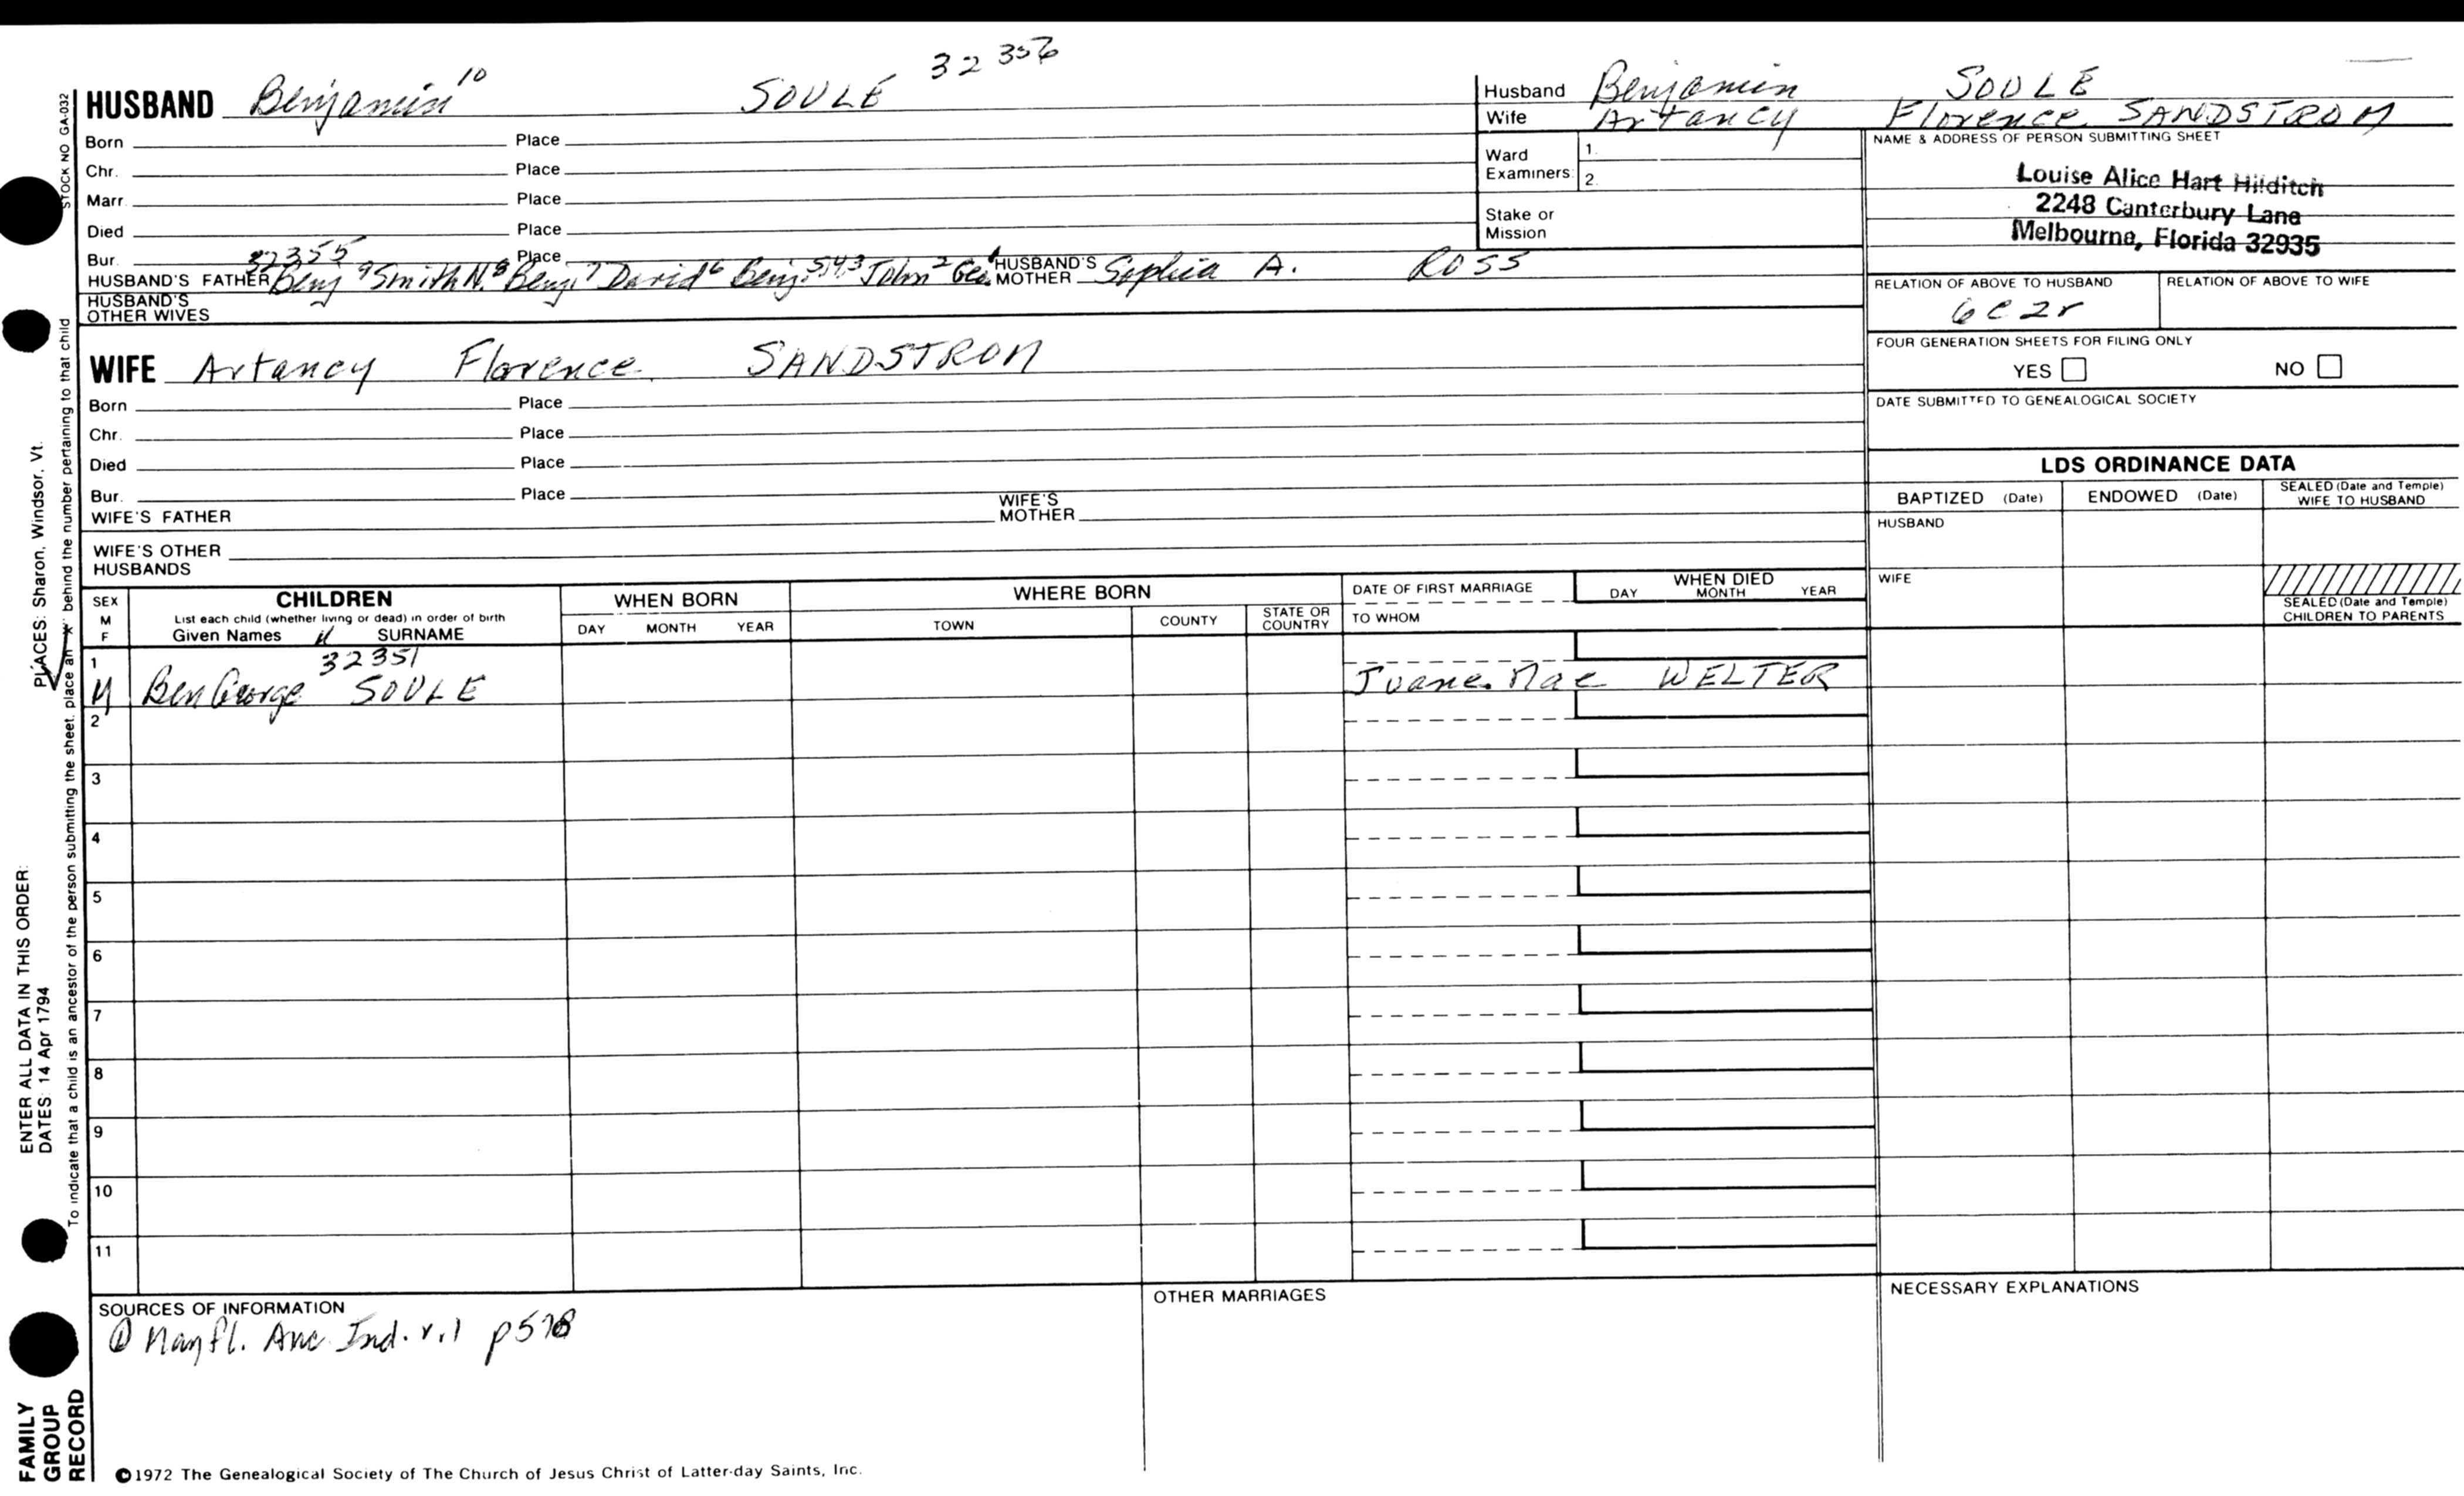 32 356
HUSBAND Benjamin 10 SOULE
Born Place
Chr. Place
Marr. Place
Died Place
Bur. Place
32355
HUSBAND'S FATHER Benj 9 Smith N. 8 Benj. 7 David 6 Benj. 5,4,3 John 2 Geo. 1 HUSBAND'S MOTHER Sophia A. ROSS
HUSBAND'S OTHER WIVES
WIFE Artancy Florence SANDSTROM
Born Place
Chr. Place
Died Place
Bur. Place
WIFE'S FATHER WIFE'S MOTHER
WIFE'S OTHER HUSBANDS
Husband Benjamin SOULE
Wife Artancy Florence SANDSTROM
Ward Examiners: 1. 2.
Stake or Mission
NAME & ADDRESS OF PERSON SUBMITTING SHEET
Louise Alice Hart Hilditch
2248 Canterbury Lane
Melbourne, Florida 32935
RELATION OF ABOVE TO HUSBAND RELATION OF ABOVE TO WIFE
6C2r
FOUR GENERATION SHEETS FOR FILING ONLY
YES NO
DATE SUBMITTED TO GENEALOGICAL SOCIETY
LDS ORDINANCE DATA
BAPTIZED (Date) ENDOWED (Date) SEALED (Date and Temple) WIFE TO HUSBAND
HUSBAND
WIFE
SEALED (Date and Temple) CHILDREN TO PARENTS
SEX M F CHILDREN WHEN BORN WHERE BORN DATE OF FIRST MARRIAGE WHEN DIED
List each child (whether living or dead) in order of birth
Given Names 11 SURNAME DAY MONTH YEAR TOWN COUNTY STATE OR COUNTRY TO WHOM DAY MONTH YEAR
1 32351
M Ben George SOULE Juane Mae WELTER
2
3
4
5
6
7
8
9
10
11
SOURCES OF INFORMATION
① Mayfl. Anc. Ind. v.1 p578
OTHER MARRIAGES
NECESSARY EXPLANATIONS
©1972 The Genealogical Society of The Church of Jesus Christ of Latter-day Saints, Inc.
STOCK NO GA-032
To indicate that a child is an ancestor of the person submitting the sheet, place an "X" behind the number pertaining to that child
PLACES: Sharon, Windsor, Vt.
ENTER ALL DATA IN THIS ORDER:
DATES: 14 Apr 1794
FAMILY GROUP RECORD